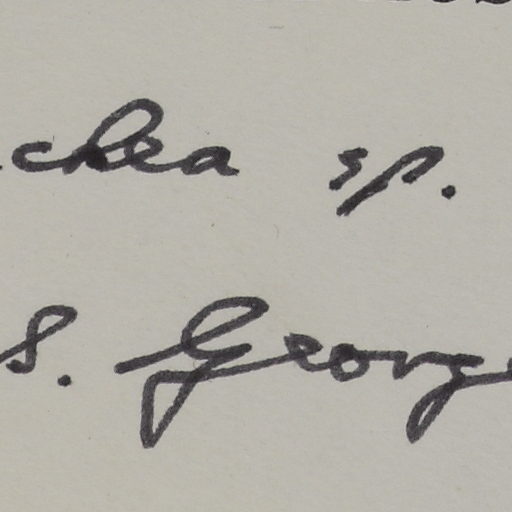 chea sp.
S. George